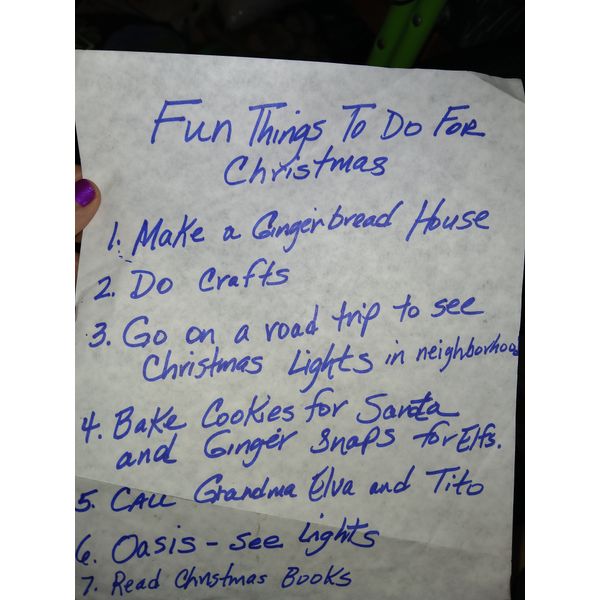 Fun Things To Do For
Christmas
1. Make a Gingerbread House
2. Do Crafts
3. Go on a road trip to see
Christmas Lights in neighborhood
4. Bake Cookies for Santa
and Ginger Snaps for Elfs.
5. Call Grandma Elva and Tito
6. Oasis - see Lights
7. Read Christmas Books